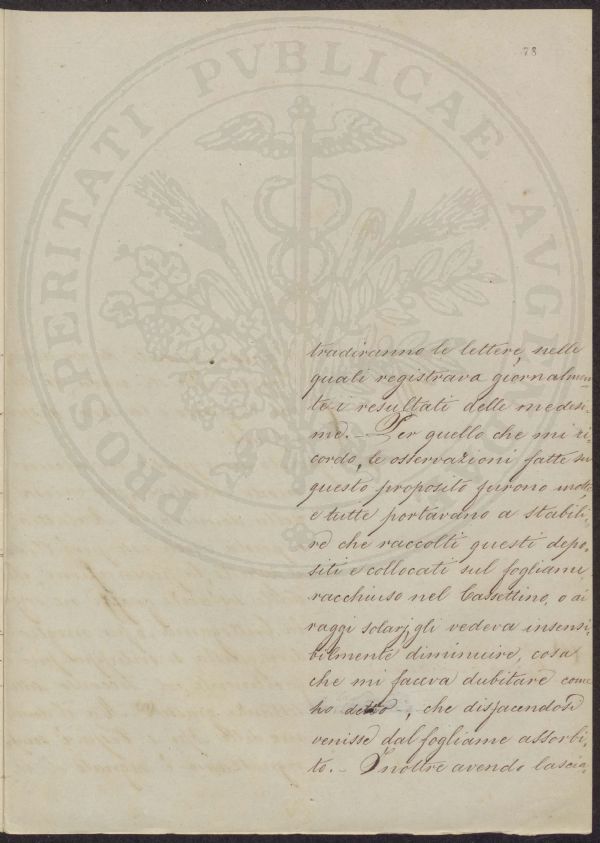 78
tradiranno le lettere, nelle
quali registrava giornalmen-
te i resultati delle medesi-
me. - Per quello che mi ri-
cordo, le osservazioni fatte su
questo proposito furono molte
e tutte portavano a stabili-
re che raccolti questi depo-
siti e collocati sul fogliame
racchiuso nel Cassettino, o ai
raggi solari, gli vedeva insensi-
bilmente diminuire, cosa
che mi faceva dubitare come
ho detto -, che disfacendosi
venisse dal fogliame assorbi-
to. - Inoltre avendo lascia-
PROSPERITATI PVBLICAE AVGENDAE